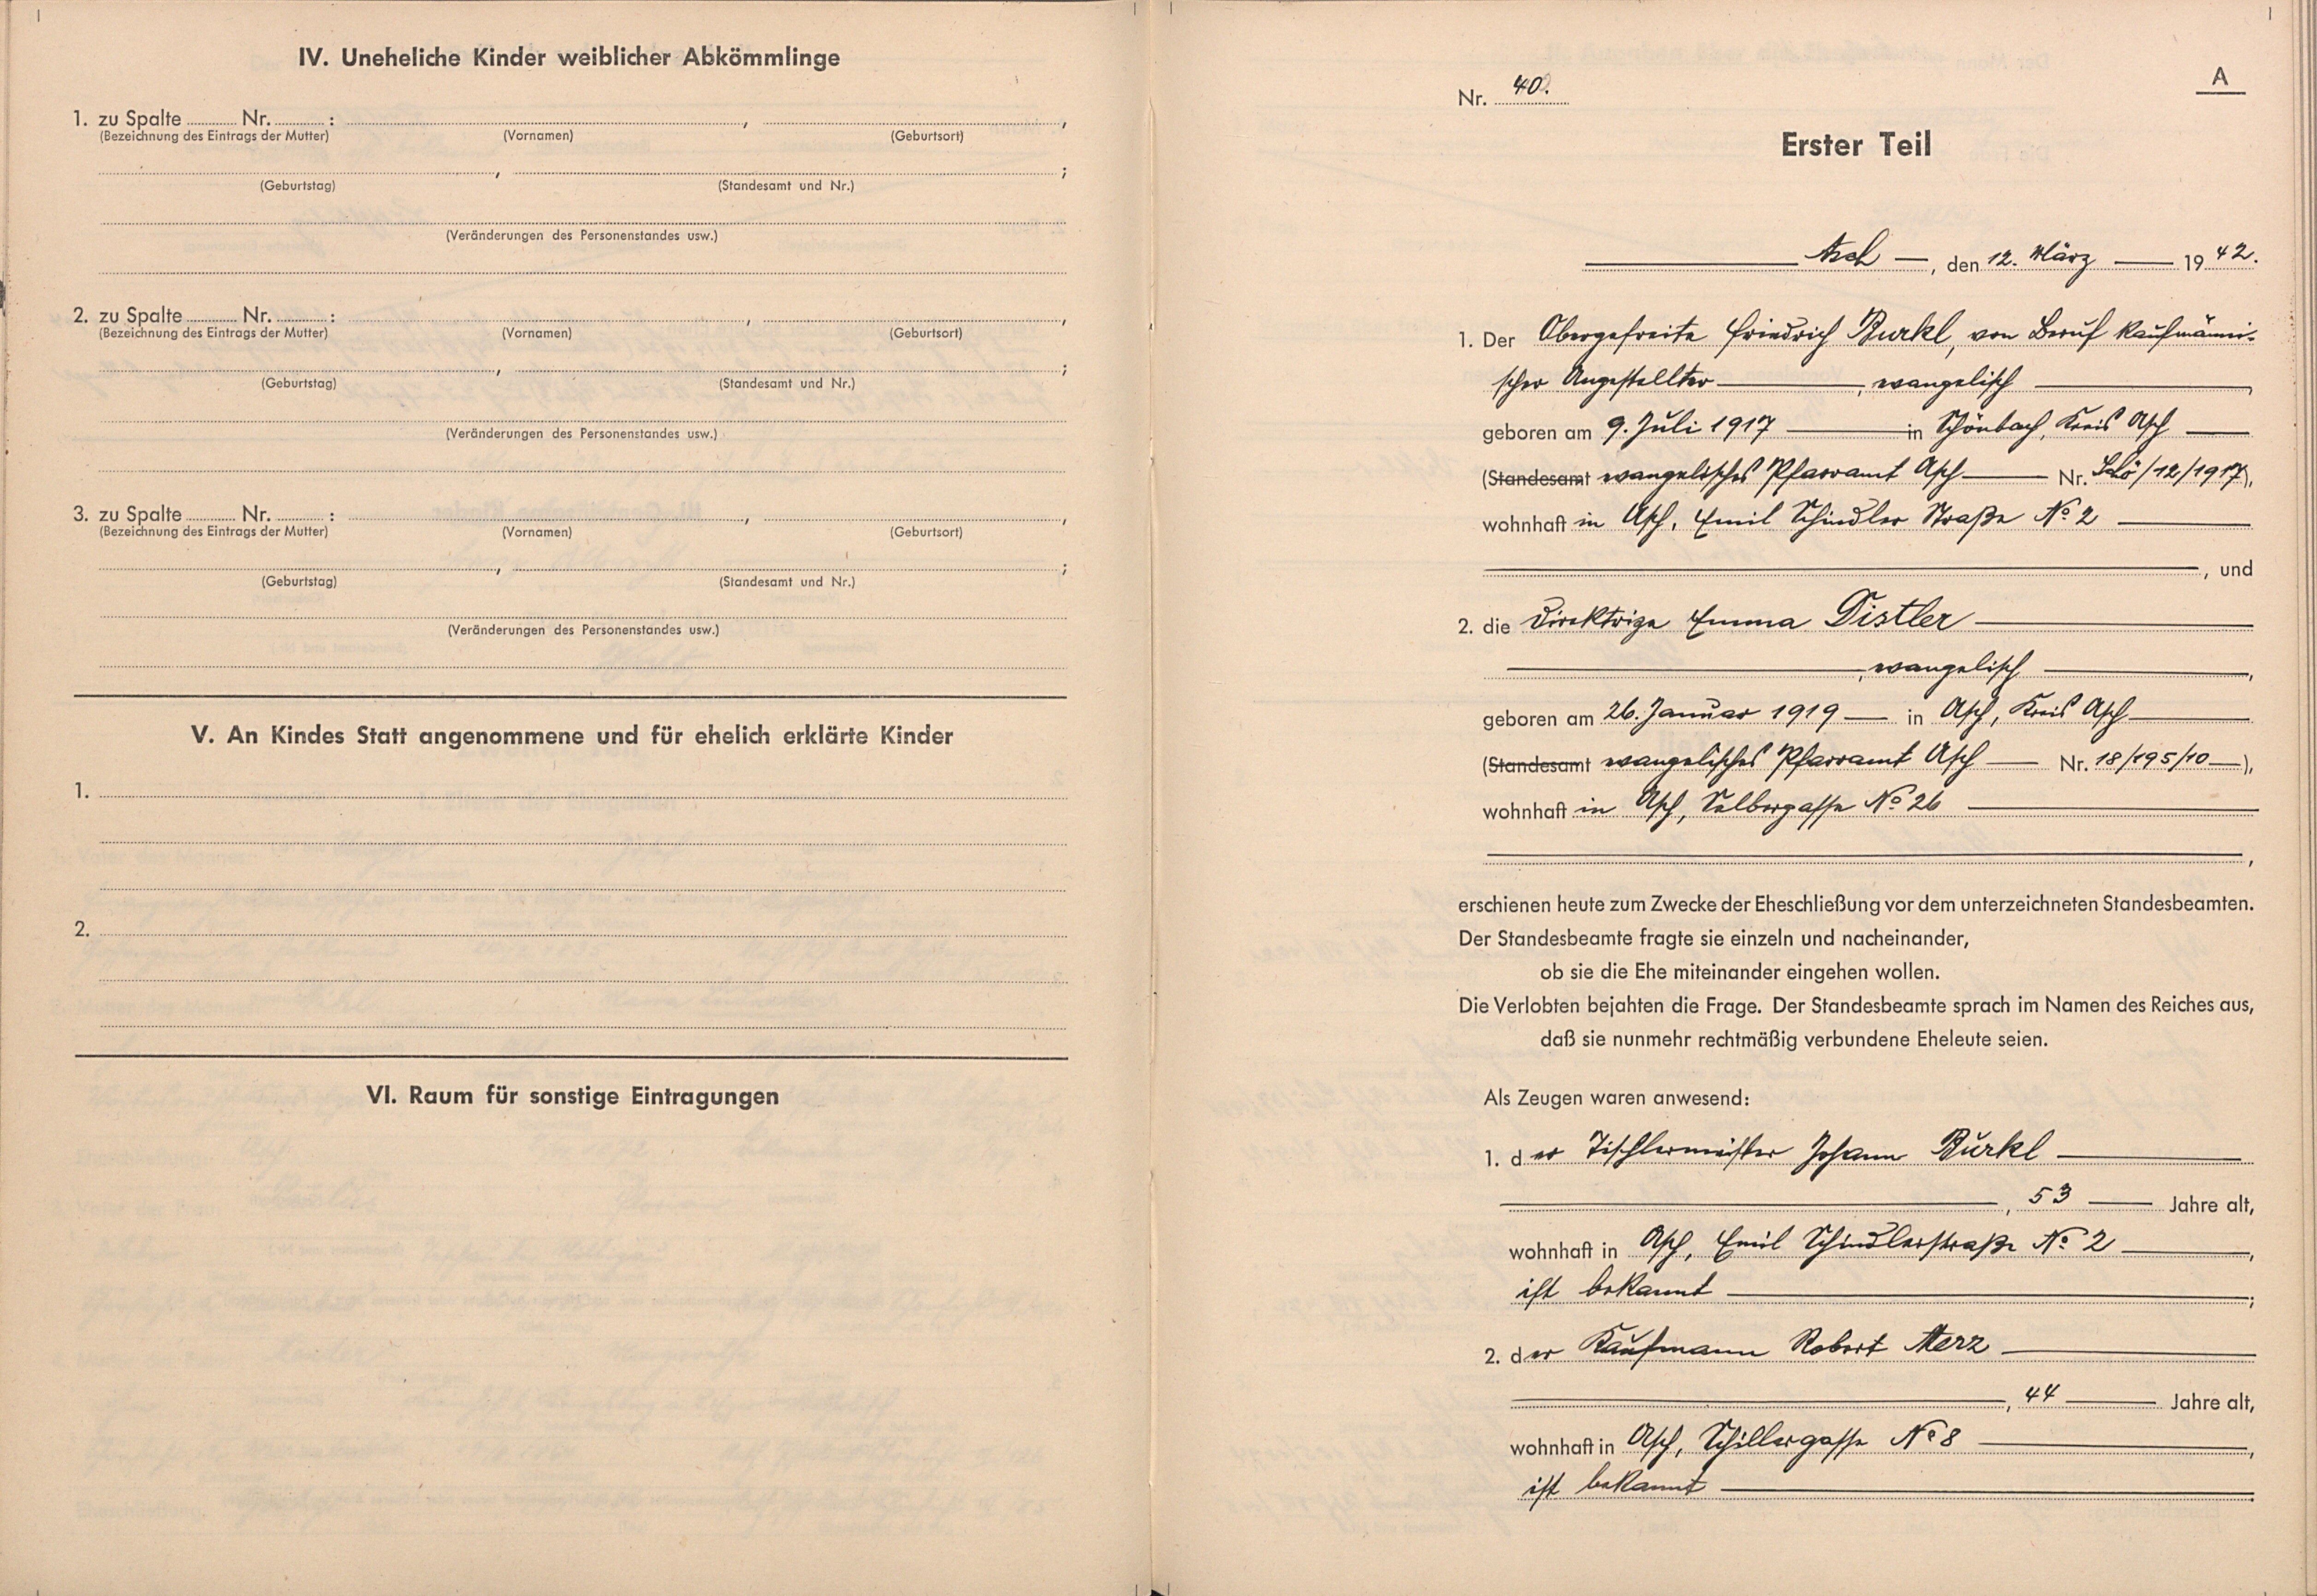 IV. Uneheliche Kinder weiblicher Abkömmlinge
1. zu Spalte Nr. : , ,
(Bezeichnung des Eintrags der Mutter) (Vornamen) (Geburtsort)
, ;
(Geburtstag) (Standesamt und Nr.)
(Veränderungen des Personenstandes usw.)
2. zu Spalte Nr. : , ,
(Bezeichnung des Eintrags der Mutter) (Vornamen) (Geburtsort)
, ;
(Geburtstag) (Standesamt und Nr.)
(Veränderungen des Personenstandes usw.)
3. zu Spalte Nr. : , ,
(Bezeichnung des Eintrags der Mutter) (Vornamen) (Geburtsort)
, ;
(Geburtstag) (Standesamt und Nr.)
(Veränderungen des Personenstandes usw.)
V. An Kindes Statt angenommene und für ehelich erklärte Kinder
1.
2.
VI. Raum für sonstige Eintragungen
A
Nr. 40.
Erster Teil
Asch, den 12. März 1942.
1. Der Obergefreite Friedrich Burkl, von Beruf kaufmänni-
scher Angestellter, evangelisch,
geboren am 9. Juli 1917 in Schönbach, Kreis Asch
(Standesamt evangelisches Pfarramt Asch Nr. Schö/12/1917),
wohnhaft in Asch, Emil Schindler Straße No 2
, und
2. die Direktrize Emma Distler
, evangelisch,
geboren am 26. Januar 1919 in Asch, Kreis Asch
(Standesamt evangelisches Pfarramt Asch Nr. 18/195/10),
wohnhaft in Asch, Selbergasse No 26
,
erschienen heute zum Zwecke der Eheschließung vor dem unterzeichneten Standesbeamten.
Der Standesbeamte fragte sie einzeln und nacheinander,
ob sie die Ehe miteinander eingehen wollen.
Die Verlobten bejahten die Frage. Der Standesbeamte sprach im Namen des Reiches aus,
daß sie nunmehr rechtmäßig verbundene Eheleute seien.
Als Zeugen waren anwesend:
1. der Tischlermeister Johann Burkl
, 53 Jahre alt,
wohnhaft in Asch, Emil Schindlerstraße No 2,
ist bekannt;
2. der Kaufmann Robert Merz
, 44 Jahre alt,
wohnhaft in Asch, Schillergasse No 8,
ist bekannt.